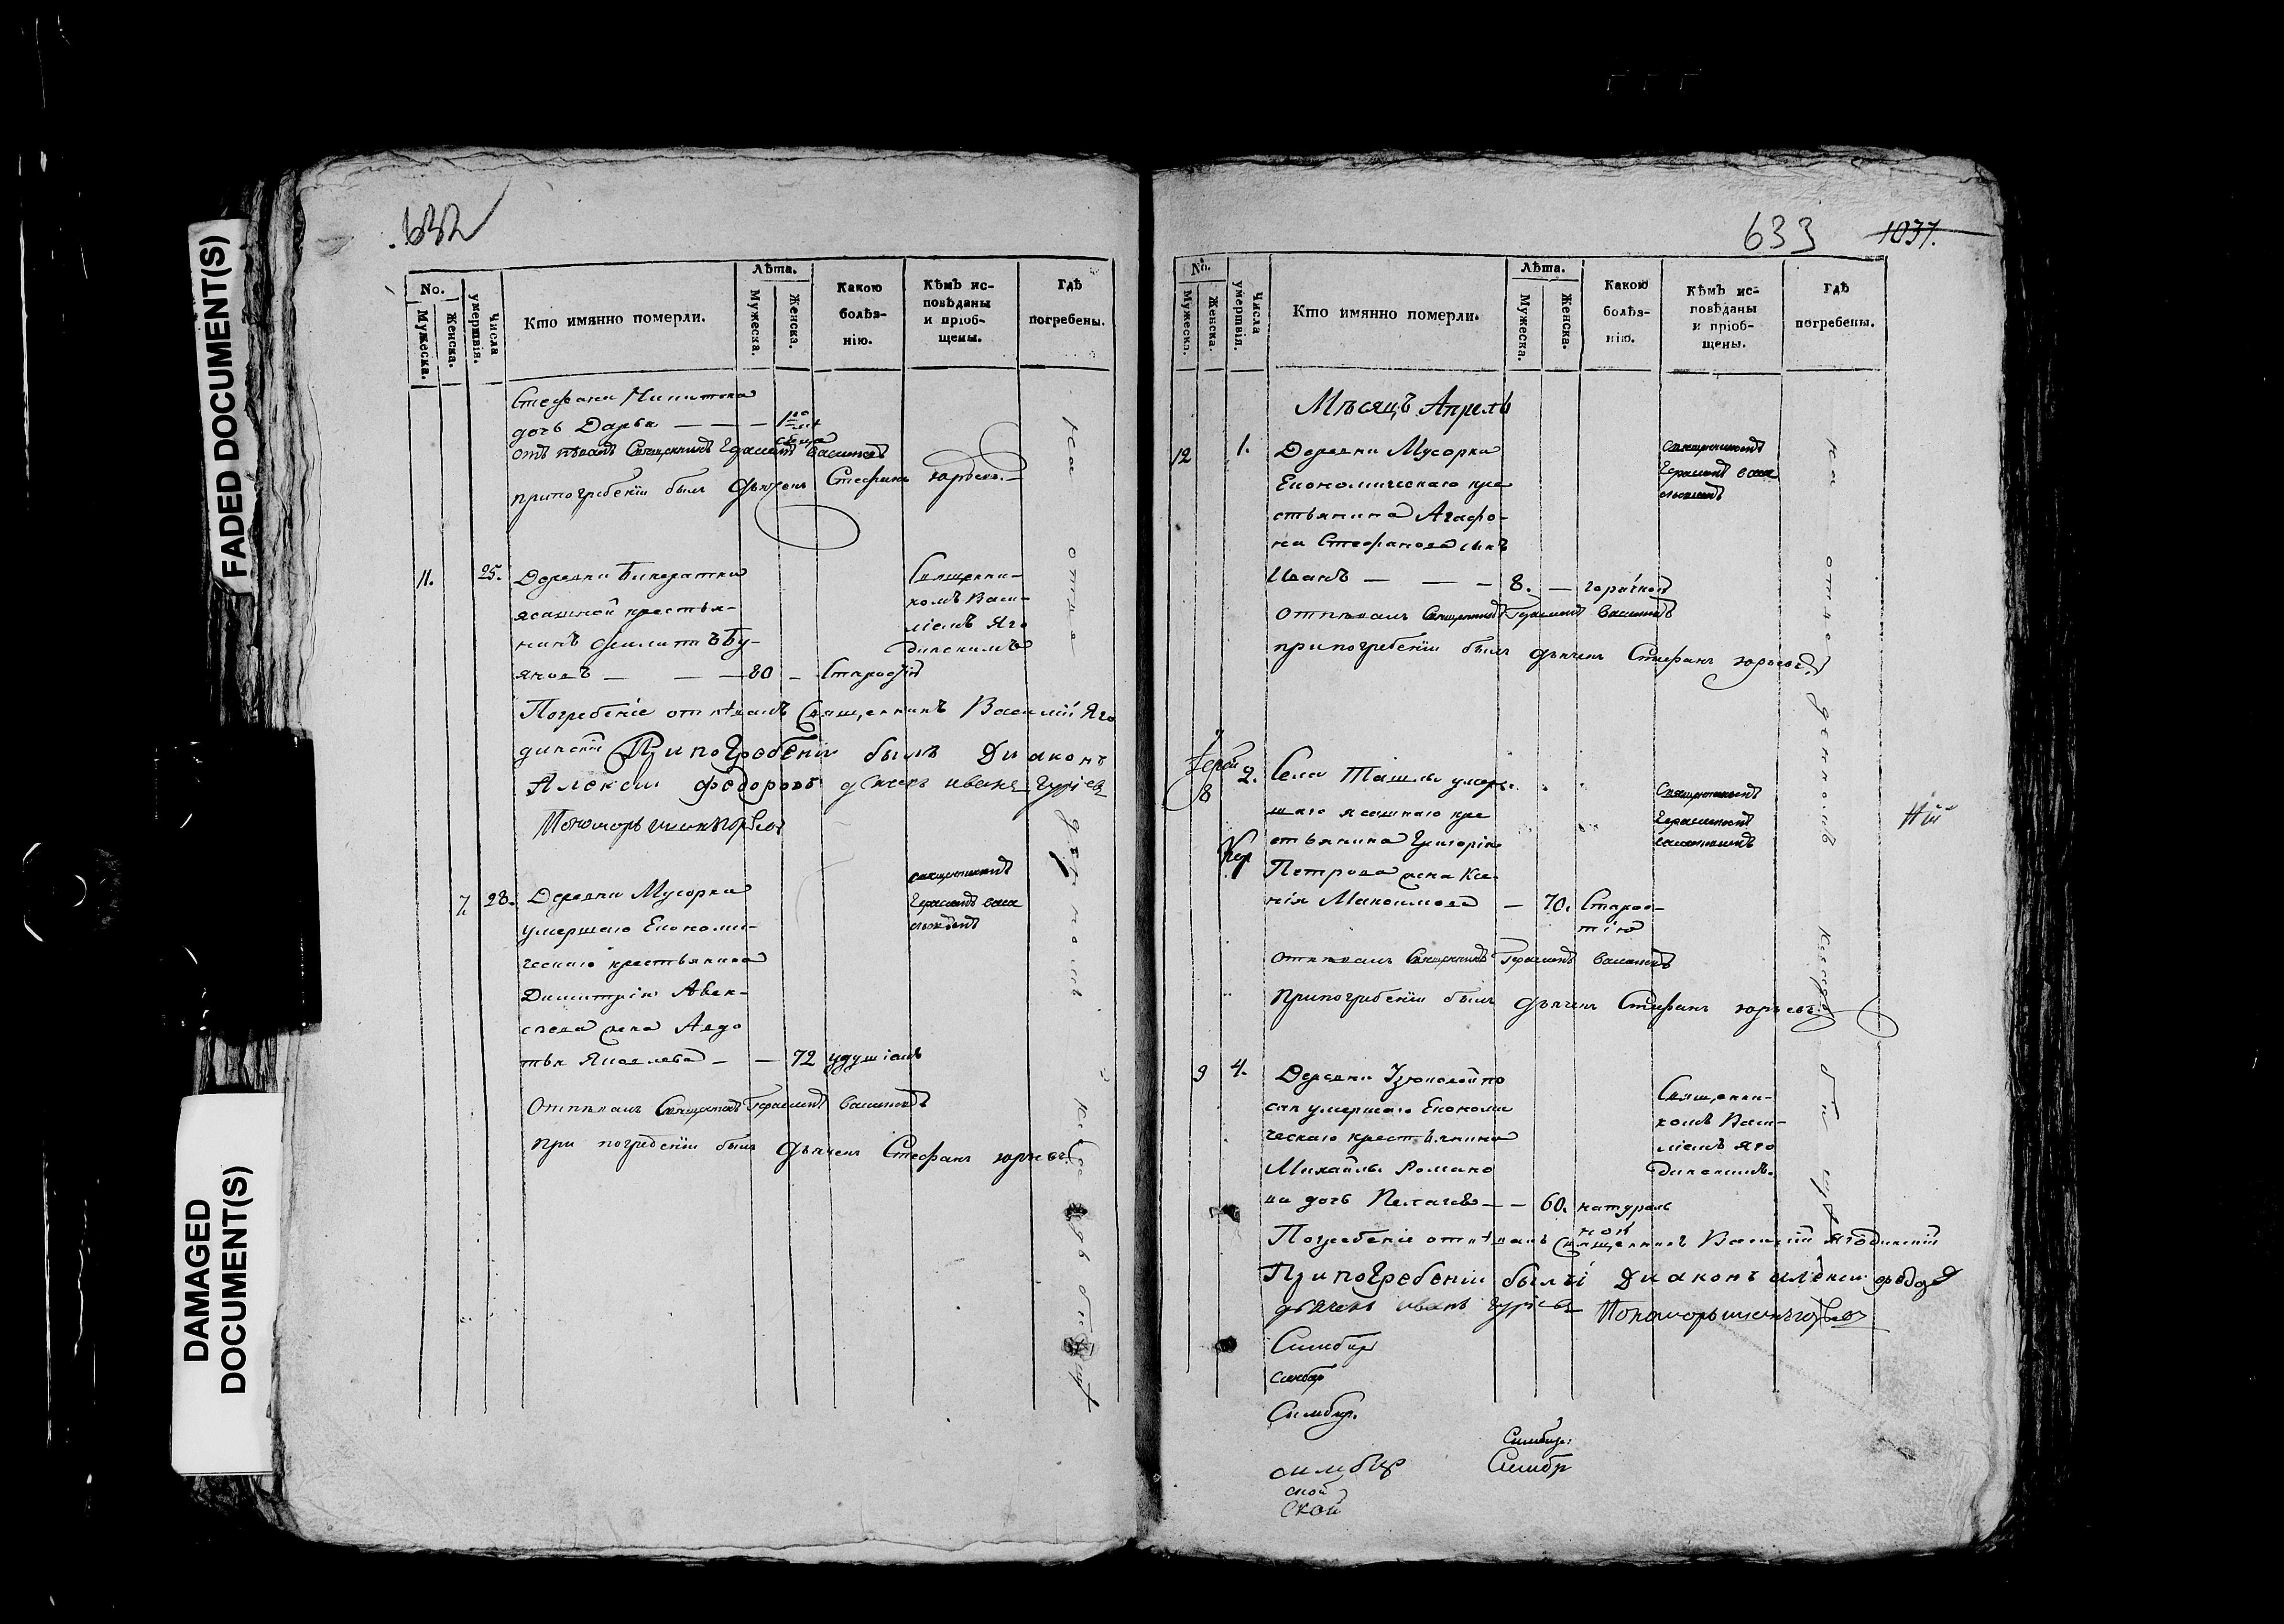 FADED DOCUMENT(S)
DAMAGED
DOCUMENT(S)
632
No.
Мужеска.
Женска.
Числа
умертвія.
Кто имянно померли.
Лѣта.
Мужеска.
Женска.
Какою
болѣз-
нію.
Кѣмъ ис-
повѣданы
и пріоб-
щены.
Гдѣ
погребены.
Стефана Никитина
дочь Дарья — — — 1
отпѣвалъ Священникъ Герасимъ Васильевъ
при погребеніи былъ Дьячекъ Стефанъ Юрьевъ.
11. 25. Деревни
ясашной крестья-
нинъ Филиппъ Бу-
яновъ — — — 80 — Старостію
Священни-
комъ Васи-
ліемъ Яго
динскимъ
Погребеніе отпѣвалъ Священникъ Василій Яго
динскій При погребеніи былъ Диаконъ
Алексѣй Федоровъ дьячекъ Иванъ Гурьевъ
Пономорь
7. 28. Деревни Мусорки
умершаго Економи-
ческаго крестьянина
Димитрія Авек-
сѣева жена Авдо
тья Яковлева — — 72 удушіемъ
священникомъ
Герасимомъ Васи
льевымъ
Отпѣвалъ Священникъ Герасимъ Васильевъ
при погребеніи былъ Дьячекъ Стефанъ Юрьевъ.
на отцо
633 1037.
No.
Мужеска.
Женска.
Числа
умертвія.
Кто имянно померли.
Лѣта.
Мужеска.
Женска.
Какою
болѣз-
нію.
Кѣмъ ис-
повѣданы
и пріоб-
щены.
Гдѣ
погребены.
Мѣсяцъ Апрель
12 1. Деревни Мусорки
Економическаго кре
стьянина Агафо-
на Стефанова сынъ
Иванъ — — — 8. — горячкой
Священникомъ
Герасимомъ Васи
льевымъ
Отпѣвалъ Священникъ Герасимъ Васильевъ
при погребеніи былъ дьячекъ Стефанъ Юрьевъ
8 2. Села Ташлы умер-
шаго ясашнаго кре
стьянина Григорія
Петрова жена Ксе-
нія Максимова — 70. Старос-
тію
Священникомъ
Герасимомъ
Васильевымъ
Отпѣвалъ Священникъ Герасимъ Васильевъ
при погребеніи былъ дьячекъ Стефанъ Юрьевъ
9 4. Деревни
умершаго Економи
ческаго крестьянина
Михайлы Романо
ва дочь Пелагея — — 60. натураль
ной
Священни-
комъ Васи-
ліемъ Яго
динскимъ.
Погребеніе отпѣвалъ Священникъ Василій Ягодинскій
При погребеніи были Диаконъ Алексѣй Федоро
дьячекъ Иванъ Гурьевъ Пономорь
Симбир
Симбир
Симбир.
Симбир:
симбир Симбр
ской
Ской
на отцо